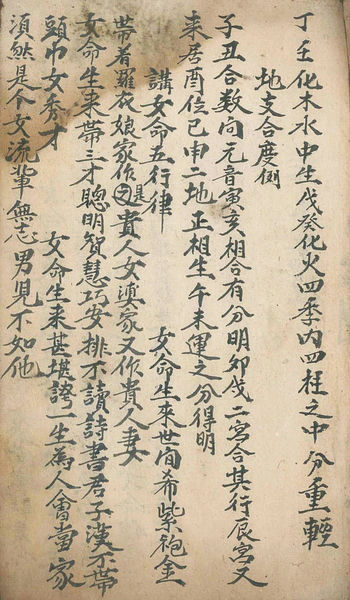 丁壬化木水中生戊癸化火四季内四柱之中分重輕
地支合度例
子丑合数向元音寅亥相合有分明卯戌二宮合其行辰宮又
来居酉位巳申二地正相生午未運之分得明
講女命五行律
女命生来世间希紫袍金
帶着羅衣娘家作是之貴人女滇家又作貴人妻
女命生来帶三才聰明智慧巧安排不讀詩書君子漢不帶
頭巾女秀才
女命生来甚堪誇一生為人會當家
須然是个女流輩無志男児不如他